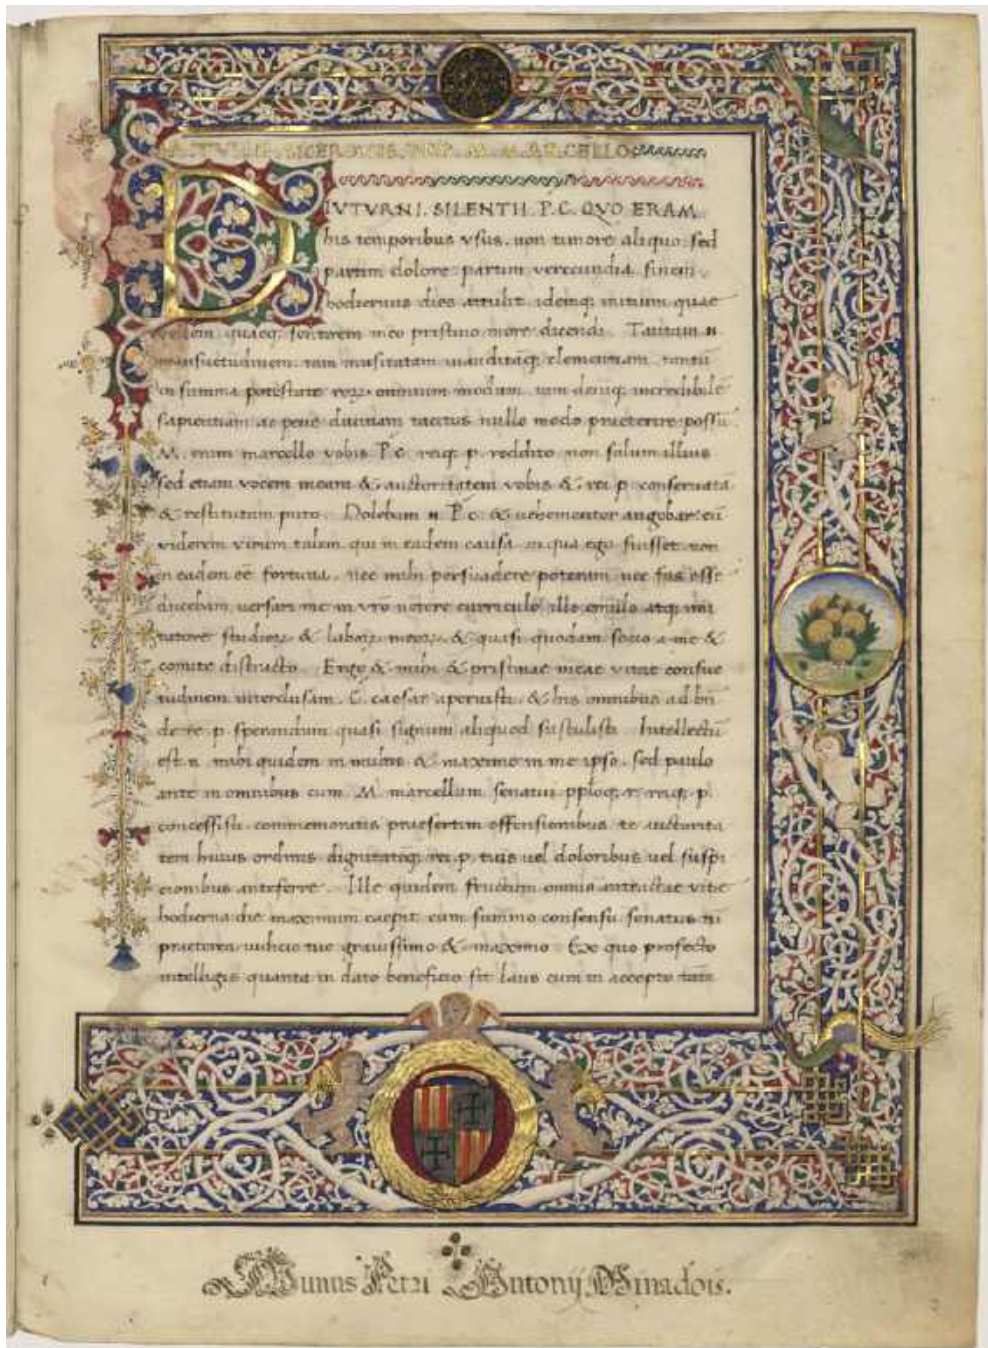 M. TVLLII. CICERONIS. PRO. M. MARCELLO
DIVTVRNI. SILENTII. P. C. QVO ERAM
his temporibus vsus. non timore aliquo. sed
partim dolore partim verecundia. finem
hodiernus dies attulit idemq; initium quae
vellem quaeq; sentirem meo pristino more dicendi. Tantam n
mansuetudinem. tam inusitatam inauditāq; clementiam. tantū
in summa potestate rerꝝ omnium modum. tam deniq; incredibilē
sapientiam ac pene diuinam tacitus nullo modo praeterire possū
M. enim marcello vobis P. c. reiq; p. reddito non solum illius
sed etiam vocem meam & auctoritatem vobis & rei p conseruatā
& restitutam puto. Dolebam n P. c. & uehementer angebar. cū
viderem virum talem qui in eadem causa in qua ego fuisset. non
in eadem eē fortuna. nec mihi persuadere poteram nec fas esse
ducebam versari me in vr̄o uetere curriculo illo emulo atq; imi
tatore studioꝝ & laboꝝ meoꝝ & quasi quodam socio a me &
comite distracto. Ergo & mihi & pristinae meae vitae consue
tudinem interclusam. C. caesar aperuisti & his omnibus ad bn̄
de re p sperandum quasi signum aliquod sustulisti. Intellectū
est n mihi quidem in multis & maxime in me ipso. sed paulo
ante in omnibus cum M. marcellum senatui pploq; r. reiq; p
concessisti commemoratis praesertim offensionibus te auctorita
tem huius ordinis dignitatēq; rei p. tuis uel doloribus uel suspi
cionibus anteferre. Ille quidem fructum omnis anteactae vitae
hodierna die maximum caepit cum summo consensu senatus tū
praeterea iudicio tuo grauissimo & maximo Ex quo profecto
intelligis quanta in dato beneficio sit laus cum in accepto tāta
Munus Petri Antonij Minadois.